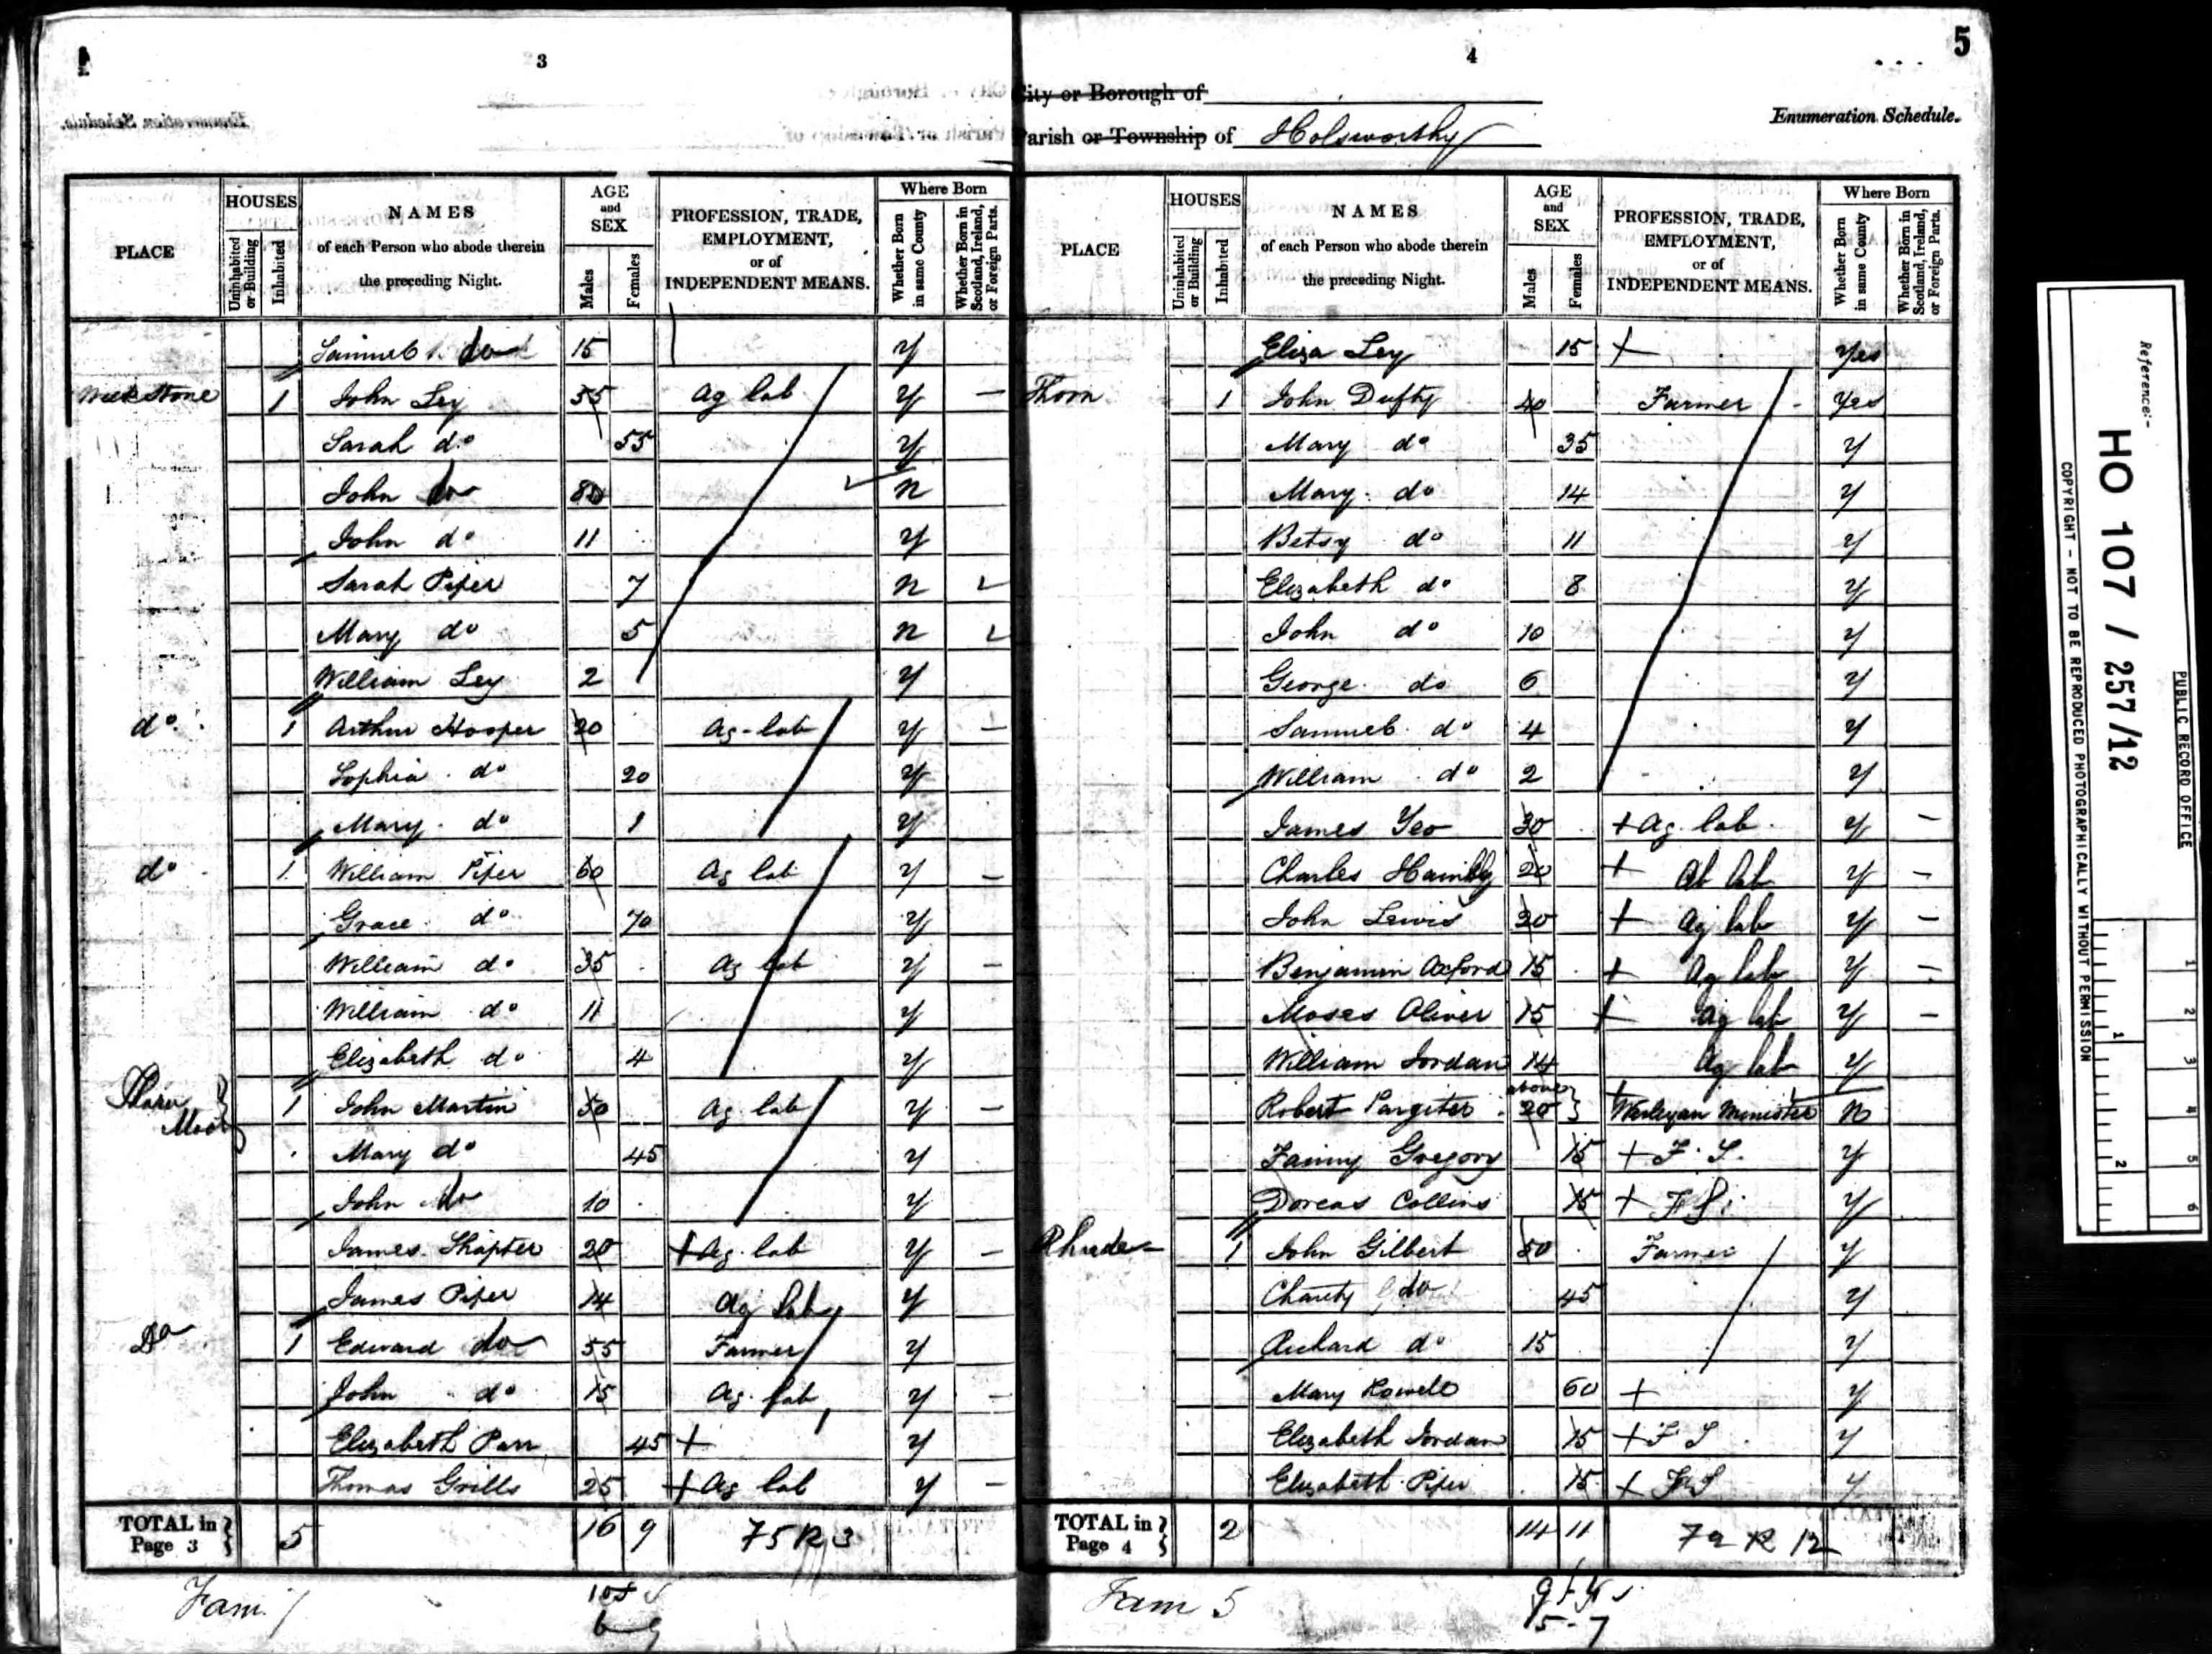 3
Enumeration Schedule.
PLACE
HOUSES
Uninhabited or Building
Inhabited
NAMES
of each Person who abode therein
the preceding Night.
AGE
and
SEX
Males
Females
PROFESSION, TRADE,
EMPLOYMENT,
or of
INDEPENDENT MEANS.
Where Born
Whether Born in same County
Whether Born in Scotland, Ireland, or Foreign Parts.
Samuel do 15 y
1 John Ley 55 Ag lab y —
Sarah do 55 y
John do 80 n
John do 11 y
Sarah Piper 7 n
Mary do 5 n
William Ley 2 y
do 1 Arthur Hooper 20 Ag-lab y —
Sophia do 20 y
Mary do 1 y
do 1 William Piper 60 Ag lab y —
Grace do 70 y
William do 35 Ag lab y —
William do 11 y
Elizabeth do 4 y
1 John Martin 50 Ag lab y —
Moor
Mary do 45 y
John do 10 y
James Shapter 20 + Ag. lab y —
James Piper 14 Ag lab y
Do 1 Edward do 55 Farmer y
John do 15 Ag. lab y —
Elizabeth Parr 45 + y
Thomas Grills 25 + Ag lab y —
TOTAL in Page 3 } 5 16 9 75 R 3
Fam.
4
5
City or Borough of
Parish or Township of Holsworthy
Enumeration Schedule.
PLACE
HOUSES
Uninhabited or Building
Inhabited
NAMES
of each Person who abode therein
the preceding Night.
AGE
and
SEX
Males
Females
PROFESSION, TRADE,
EMPLOYMENT,
or of
INDEPENDENT MEANS.
Where Born
Whether Born in same County
Whether Born in Scotland, Ireland, or Foreign Parts.
Eliza Ley 15 + Yes
Thorn 1 John Dufty 40 Farmer - Yes
Mary do 35 y
Mary do 14 y
Betsy do 11 y
Elizabeth do 8 y
John do 10 y
George do 6 y
Samuel do 4 y
William do 2 y
James Yeo 30 + Ag. lab y —
Charles 20 + Ab lab y —
John Lewis 20 + Ag lab y —
Benjamin Axford 15 + Ag lab y —
Moses Oliver 15 + Ag lab y —
William Jordan 14 Ag lab y
Robert Pargiter above 20 } Wesleyan Minister n
Fanny Gregory 15 + F. S. y
Dorcas Collins 15 + F S. y
1 John Gilbert 50 Farmer y
Charity do 45 y
Richard do 15 y
Mary Rowell 60 + y
Elizabeth Jordan 15 + F S y
Elizabeth Piper 15 + F S y
TOTAL in Page 4 } 2 14 11 12
Fam 5
Reference:-
HO 107 / 257/12
PUBLIC RECORD OFFICE
COPYRIGHT - NOT TO BE REPRODUCED PHOTOGRAPHICALLY WITHOUT PERMISSION
1
2
1
2
3
4
5
6